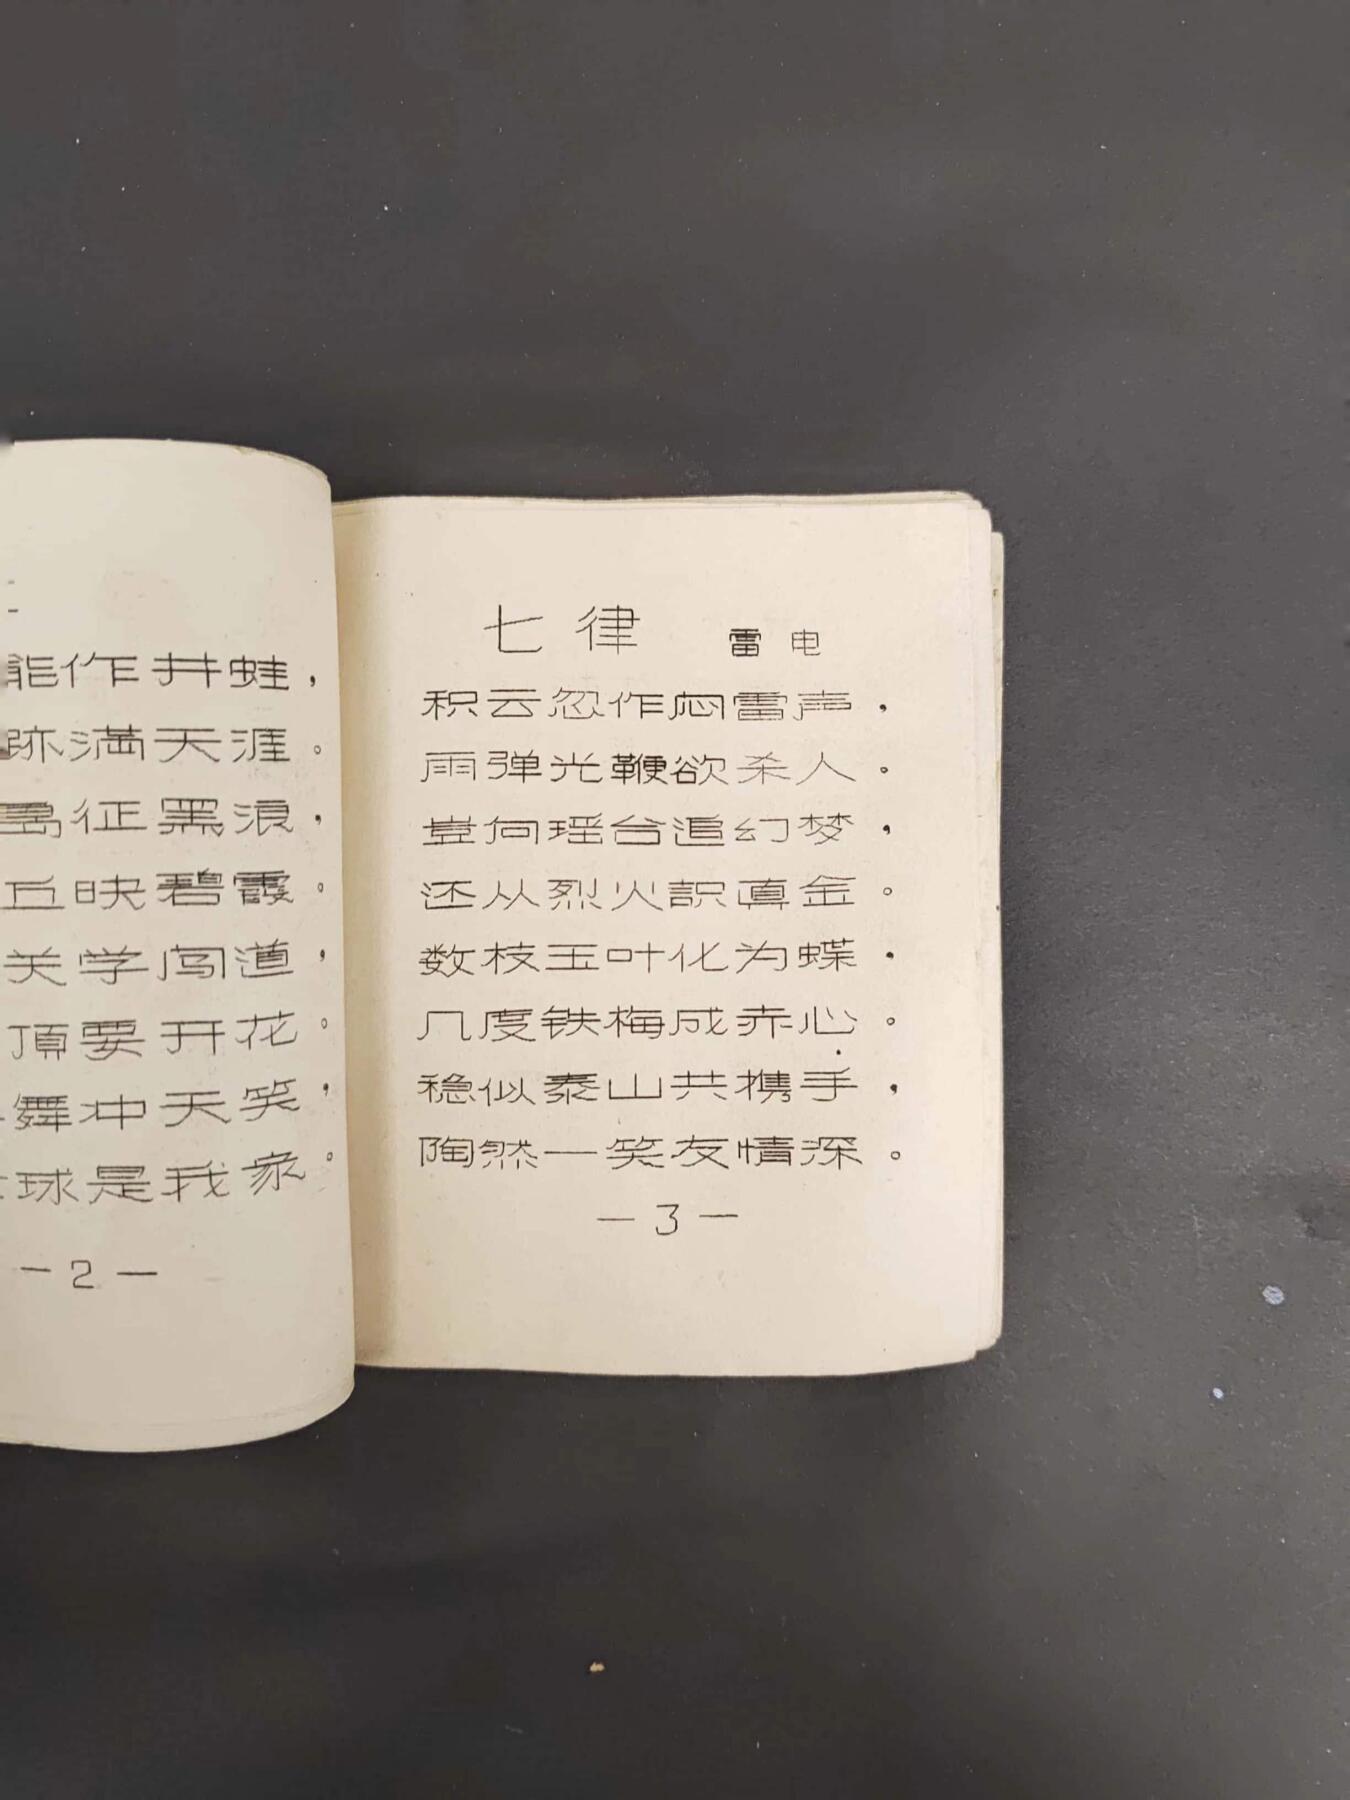 能作井蛙，
跡满天涯。
岛征黑浪，
丘映碧霞。
关学闯道，
頂要开花。
舞冲天笑，
球是我家。
—2—
七律 雷电
积云忽作闷雷声，
雨弹光鞭欲杀人。
豈向瑶台追幻梦，
还从烈火識真金。
数枝玉叶化为蝶，
几度铁梅成赤心。
稳似泰山共携手，
陶然一笑友情深。
—3—